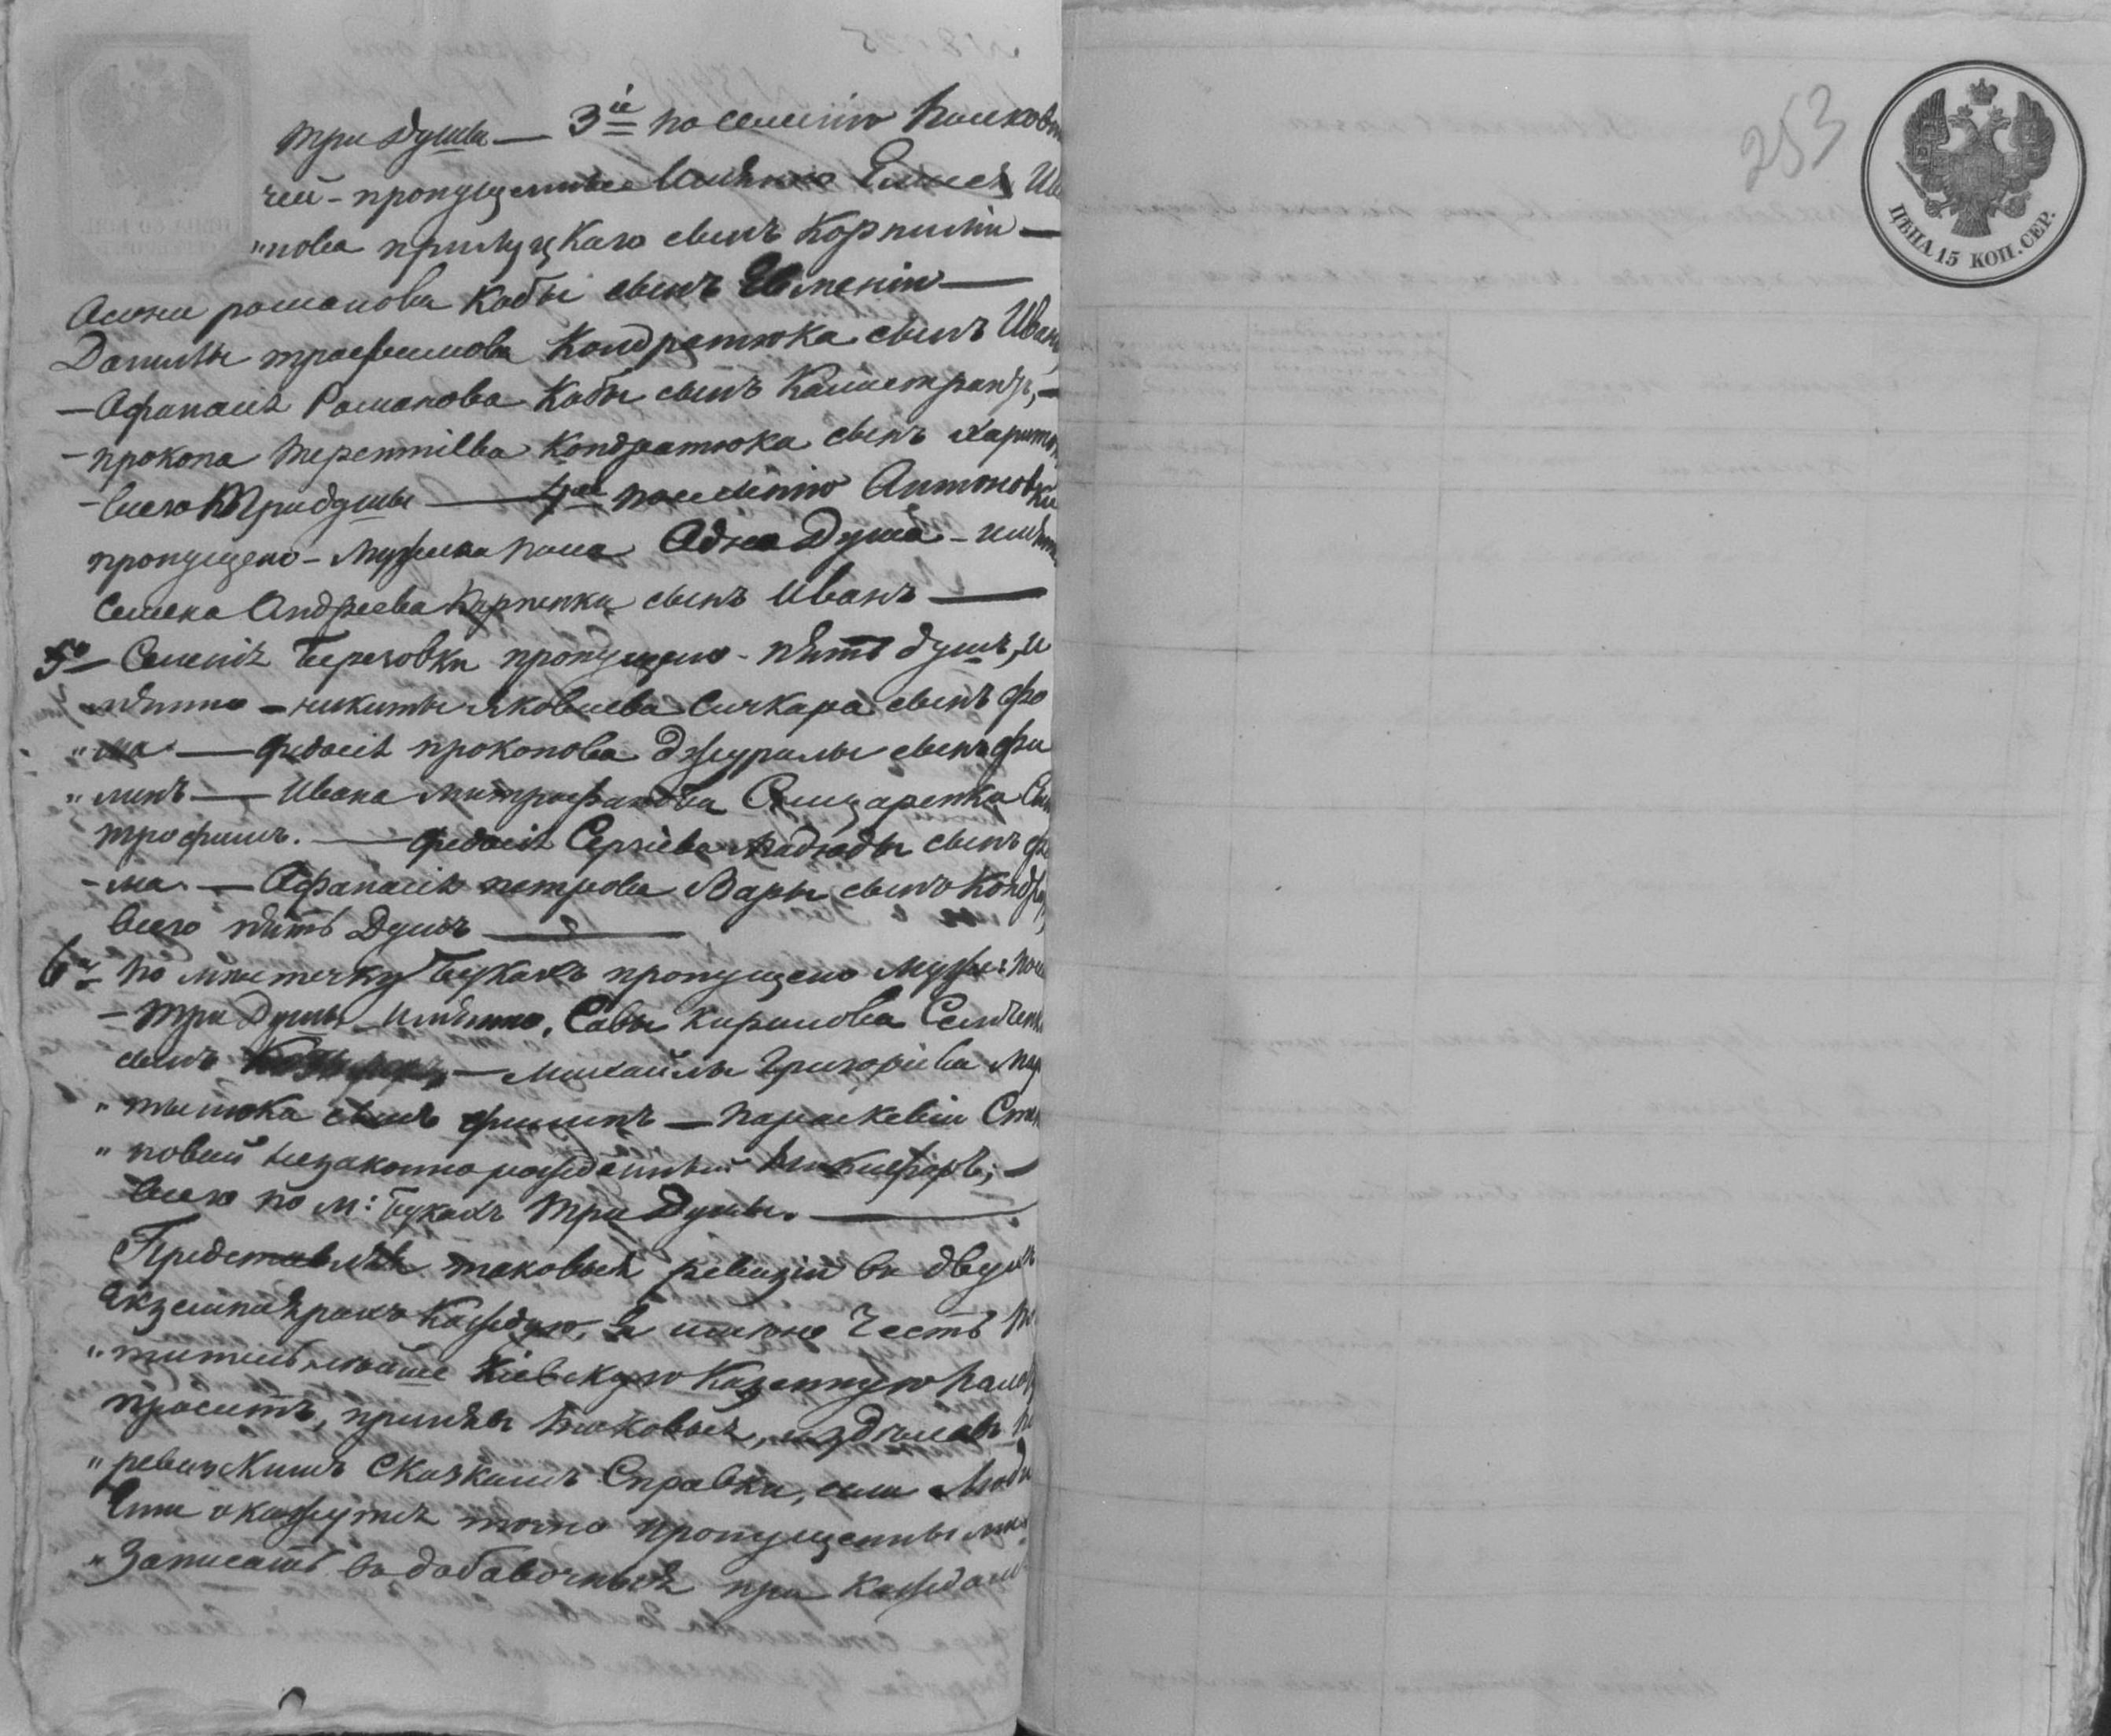 три души — 3й по селенію Полков
чей - пропущенные Имянно Елисея Ив
"нова прилуцкаго сынъ Корнилій —
романова Кобы сынъ Евменій —
Данилы трофимова Кондратюка сынъ Иванъ
— Афанасія Романова Кобы сынъ Калистратъ, —
- прокопа терентіева Кондратюка сынъ харитонъ
- всего три души — 4е по селенію Антоновки
пропущено - мужска пола Одна Душа - имянно
Семена Андреева сынъ Иванъ —
5е Селенія Березовки пропущено - пять душъ, и
мянно - никиты яковлева Сичкара сынъ фо
"ма — федосія прокопова джуралы сынъ фи
"липъ — Ивана митрофанова сы
трофимъ. — федосія Сергіева сынъ фо
- ма. — Афанасія петрова Вары сынъ Кондра
всего пять Душъ —
6е По мѣстечку Букахъ пропущено мужс: пола
- три Души имянно, Савы Кирилова
сынъ — михайлы Григоріева мар
"тынюка сынъ филипъ — параскевіи Сте
"повой незаконнорожденный никифоръ; —
всего по м: Букахъ три Души. —
Представляя таковыя ревизіи въ двухъ
Экземплярахъ Каждую, имѣю Честь по
"чтительнѣйше Кіевскую Казенную Палату
просить, принявъ таковыя, и здѣлавъ по
"ревизскимъ Сказкамъ Справки, если Люди
Эти окажутся точно пропущенными
"Записать въ добавочныя при Каждом
253
ЦѢНА 15 КОП. СЕР.